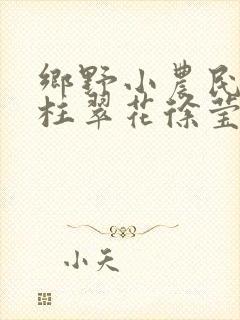 鄉野小農民
枉翠花徐瑩
小天